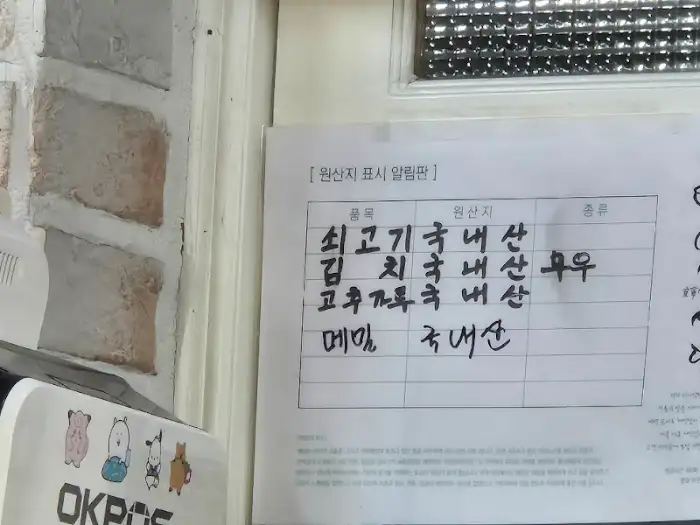 [ 원산지 표시 알림판 ]
품목 원산지 종류
쇠고기 국내산
김치 국내산 무우
고추가루 국내산
메밀 국내산
OKPOS